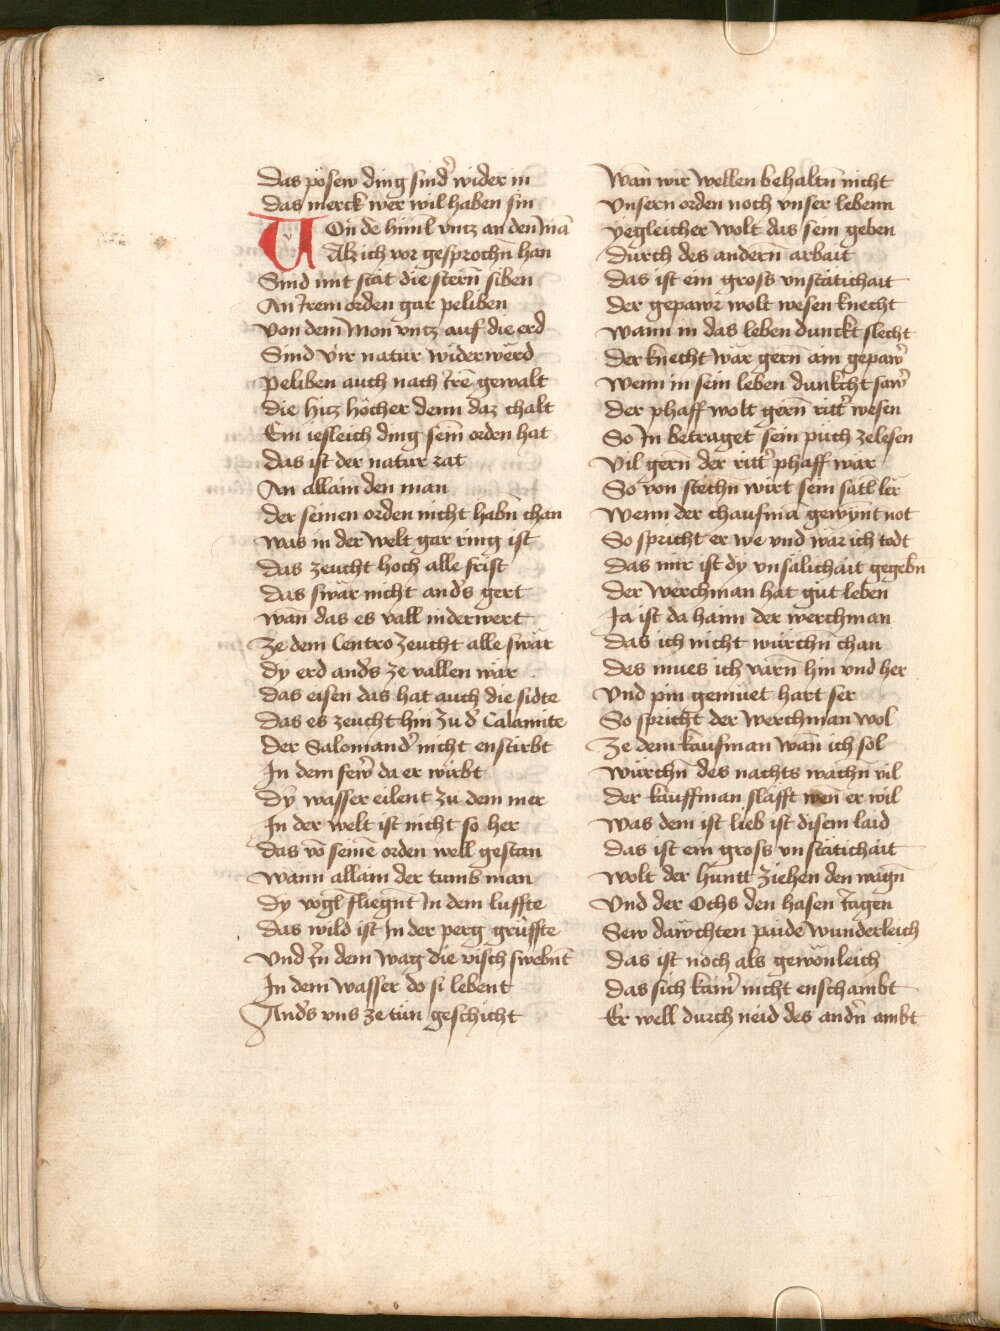 Das pösew ding sind' wider in
das merck wer wil haben sin
Von dē himl vntz an den mā
Alz ich vor gesprochn̄ han
Sind mit stät die stern̄ siben
An irem orden gar peliben
Von dem mon vntz auf die erd
Sind vir natur widerwërd
Peliben auch nach irē gewalt
Die hitz höcher denn daz chalt
Ein iesleich ding sein orden hat
Das ist der natur rat
An allain den man
Der seinen orden nicht habn̄ chan
Was in der welt gar ring ist
Das zeucht hoch alle frist
Das swär nicht and's gert
Wan̄ das es vall niderwert
Ze dem Centro zeucht alle swär
Dy erd and's ze vallen wär
Das eisen das hat auch die sidte
Das es zeucht hin zu d' Calamite
Der Salomand' nicht enstirbt
In dem few' da er wirbt
Dÿ wasser eilent zu dem mer
In der welt ist nicht so her
Das vō seinē orden well gestan
Wann allain der tumb man
Dy vogl̄ fliegn̄t In dem luffte
Das wild ist In der perg grüffte
Vnd In dem wag die visch swebn̄t
In dem wasser do si lebent
And's vns ze tün geschicht
Wan̄ wir wellen behaltn̄ nicht
Vnsern orden noch vnser lebenn
Yegleicher wolt das sein geben
Durch des andern̄ arbait
Das ist ein gross vnstätichait
Der gepawr wolt wesen knecht
Wann in das leben dunckt slecht
Der knecht wär gern̄ ain gepaw'
Wenn in sein leben dunkcht saw'
Der phaff wolt gern̄ ritt' wesen
So In betraget sein püch zelesen
Vil gern̄ der ritt' phaff wär
So von stechn̄ wirt sein satl ler
Wenn der chaufmā gewÿnt not
So spricht er we vnd wär ich todt
Das mir ist dy vnsälichait gegebn̄
Der werchman hat güt leben
Ja ist da haim der werchman
Das ich nicht würchn̄ chan
Des mues ich varn̄ hin vnd her
Vnd pin gemüet hart ser
So spricht der werchman wol
Ze dem kaufman wan̄ ich sol
Würchn̄ des nachts wachn̄ vil
Der kauffman släfft wen̄ er wil
Was dem ist lieb ist disem laid
Das ist ein gross vnstätichait
Wolt der huntt ziehen den wagn̄
Vnd der Ochs den hasen iagen
Sew däwchten paide wunderleich
Das ist noch als gewönleich
Das sich kaim' nicht enschambt
Er well durch neid des andn̄ ambt